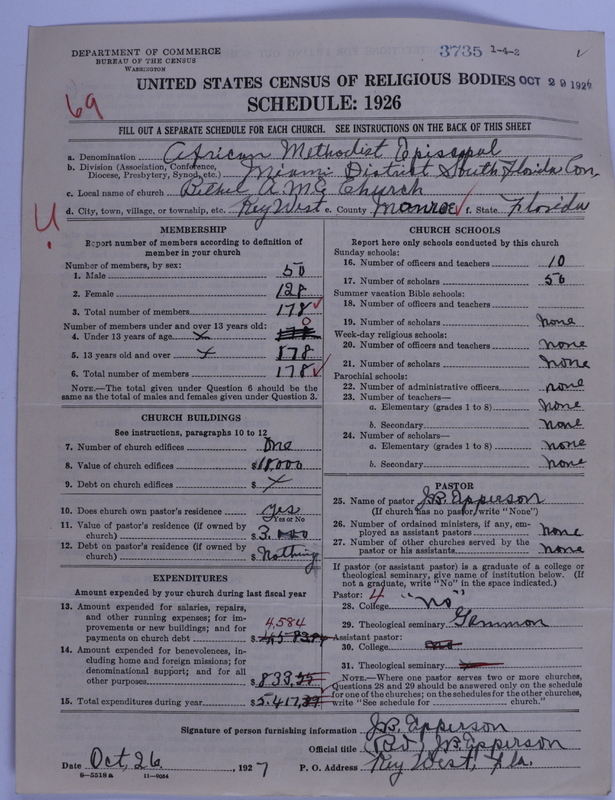 DEPARTMENT OF COMMERCE
BUREAU OF THE CENSUS
WASHINGTON
3735 1-4-2
UNITED STATES CENSUS OF RELIGIOUS BODIES OCT 29 1927
SCHEDULE: 1926
69
FILL OUT A SEPARATE SCHEDULE FOR EACH CHURCH. SEE INSTRUCTIONS ON THE BACK OF THIS SHEET
a. Denomination African Methodist Episcopal
b. Division (Association, Conference, Diocese, Presbytery, Synod, etc.) Miami District South Florida Con.
c. Local name of church Bethel A.M.E. Church
d. City, town, village, or township, etc. Key West e. County Monroe f. State Florida
MEMBERSHIP
Report number of members according to definition of
member in your church
Number of members, by sex:
1. Male 50
2. Female 128
3. Total number of members 178
Number of members under and over 13 years old:
4. Under 13 years of age x 0
5. 13 years old and over x 178
6. Total number of members 178
NOTE.—The total given under Question 6 should be
same as the total of males and females given under Question 3.
CHURCH BUILDINGS
See instructions, paragraphs 10 to 12
7. Number of church edifices One
8. Value of church edifices $18,000
9. Debt on church edifices $ x
10. Does church own pastor's residence yes
Yes or No
11. Value of pastor's residence (if owned by
church) $3.
12. Debt on pastor's residence (if owned by
church) $ Nothing
EXPENDITURES
Amount expended by your church during last fiscal year
13. Amount expended for salaries, repairs,
and other running expenses; for im-
provements or new buildings; and for
payments on church debt $ 4,584
14. Amount expended for benevolences, in-
cluding home and foreign missions; for
denominational support; and for all
other purposes $833,
15. Total expenditures during year $5,417,
CHURCH SCHOOLS
Report here only schools conducted by this church
Sunday schools:
16. Number of officers and teachers 10
17. Number of scholars 50
Summer vacation Bible schools:
18. Number of officers and teachers
19. Number of scholars none
Week-day religious schools:
20. Number of officers and teachers none
21. Number of scholars none
Parochial schools:
22. Number of administrative officers none
23. Number of teachers—
a. Elementary (grades 1 to 8) none
b. Secondary none
24. Number of scholars—
a. Elementary (grades 1 to 8) none
b. Secondary none
PASTOR
25. Name of pastor J.B. Epperson
(If church has no pastor, write "None")
26. Number of ordained ministers, if any, em-
ployed as assistant pastors none
27. Number of other churches served by the
pastor or his assistants none
If pastor (or assistant pastor) is a graduate of a college or
theological seminary, give name of institution below. (If
not a graduate, write "No" in the space indicated.)
Pastor: 4
28. College "no"
29. Theological seminary Gammon
Assistant pastor:
30. College
31. Theological seminary
NOTE.—Where one pastor serves two or more churches,
Questions 28 and 29 should be answered only on the schedule
for one of the churches; on the schedules for the other churches,
write "See schedule for church."
Signature of person furnishing information J.B. Epperson
Official title J.B. Epperson
Date Oct, 26, 1927 P. O. Address Key West, Fla.
8—5518a 11—9024